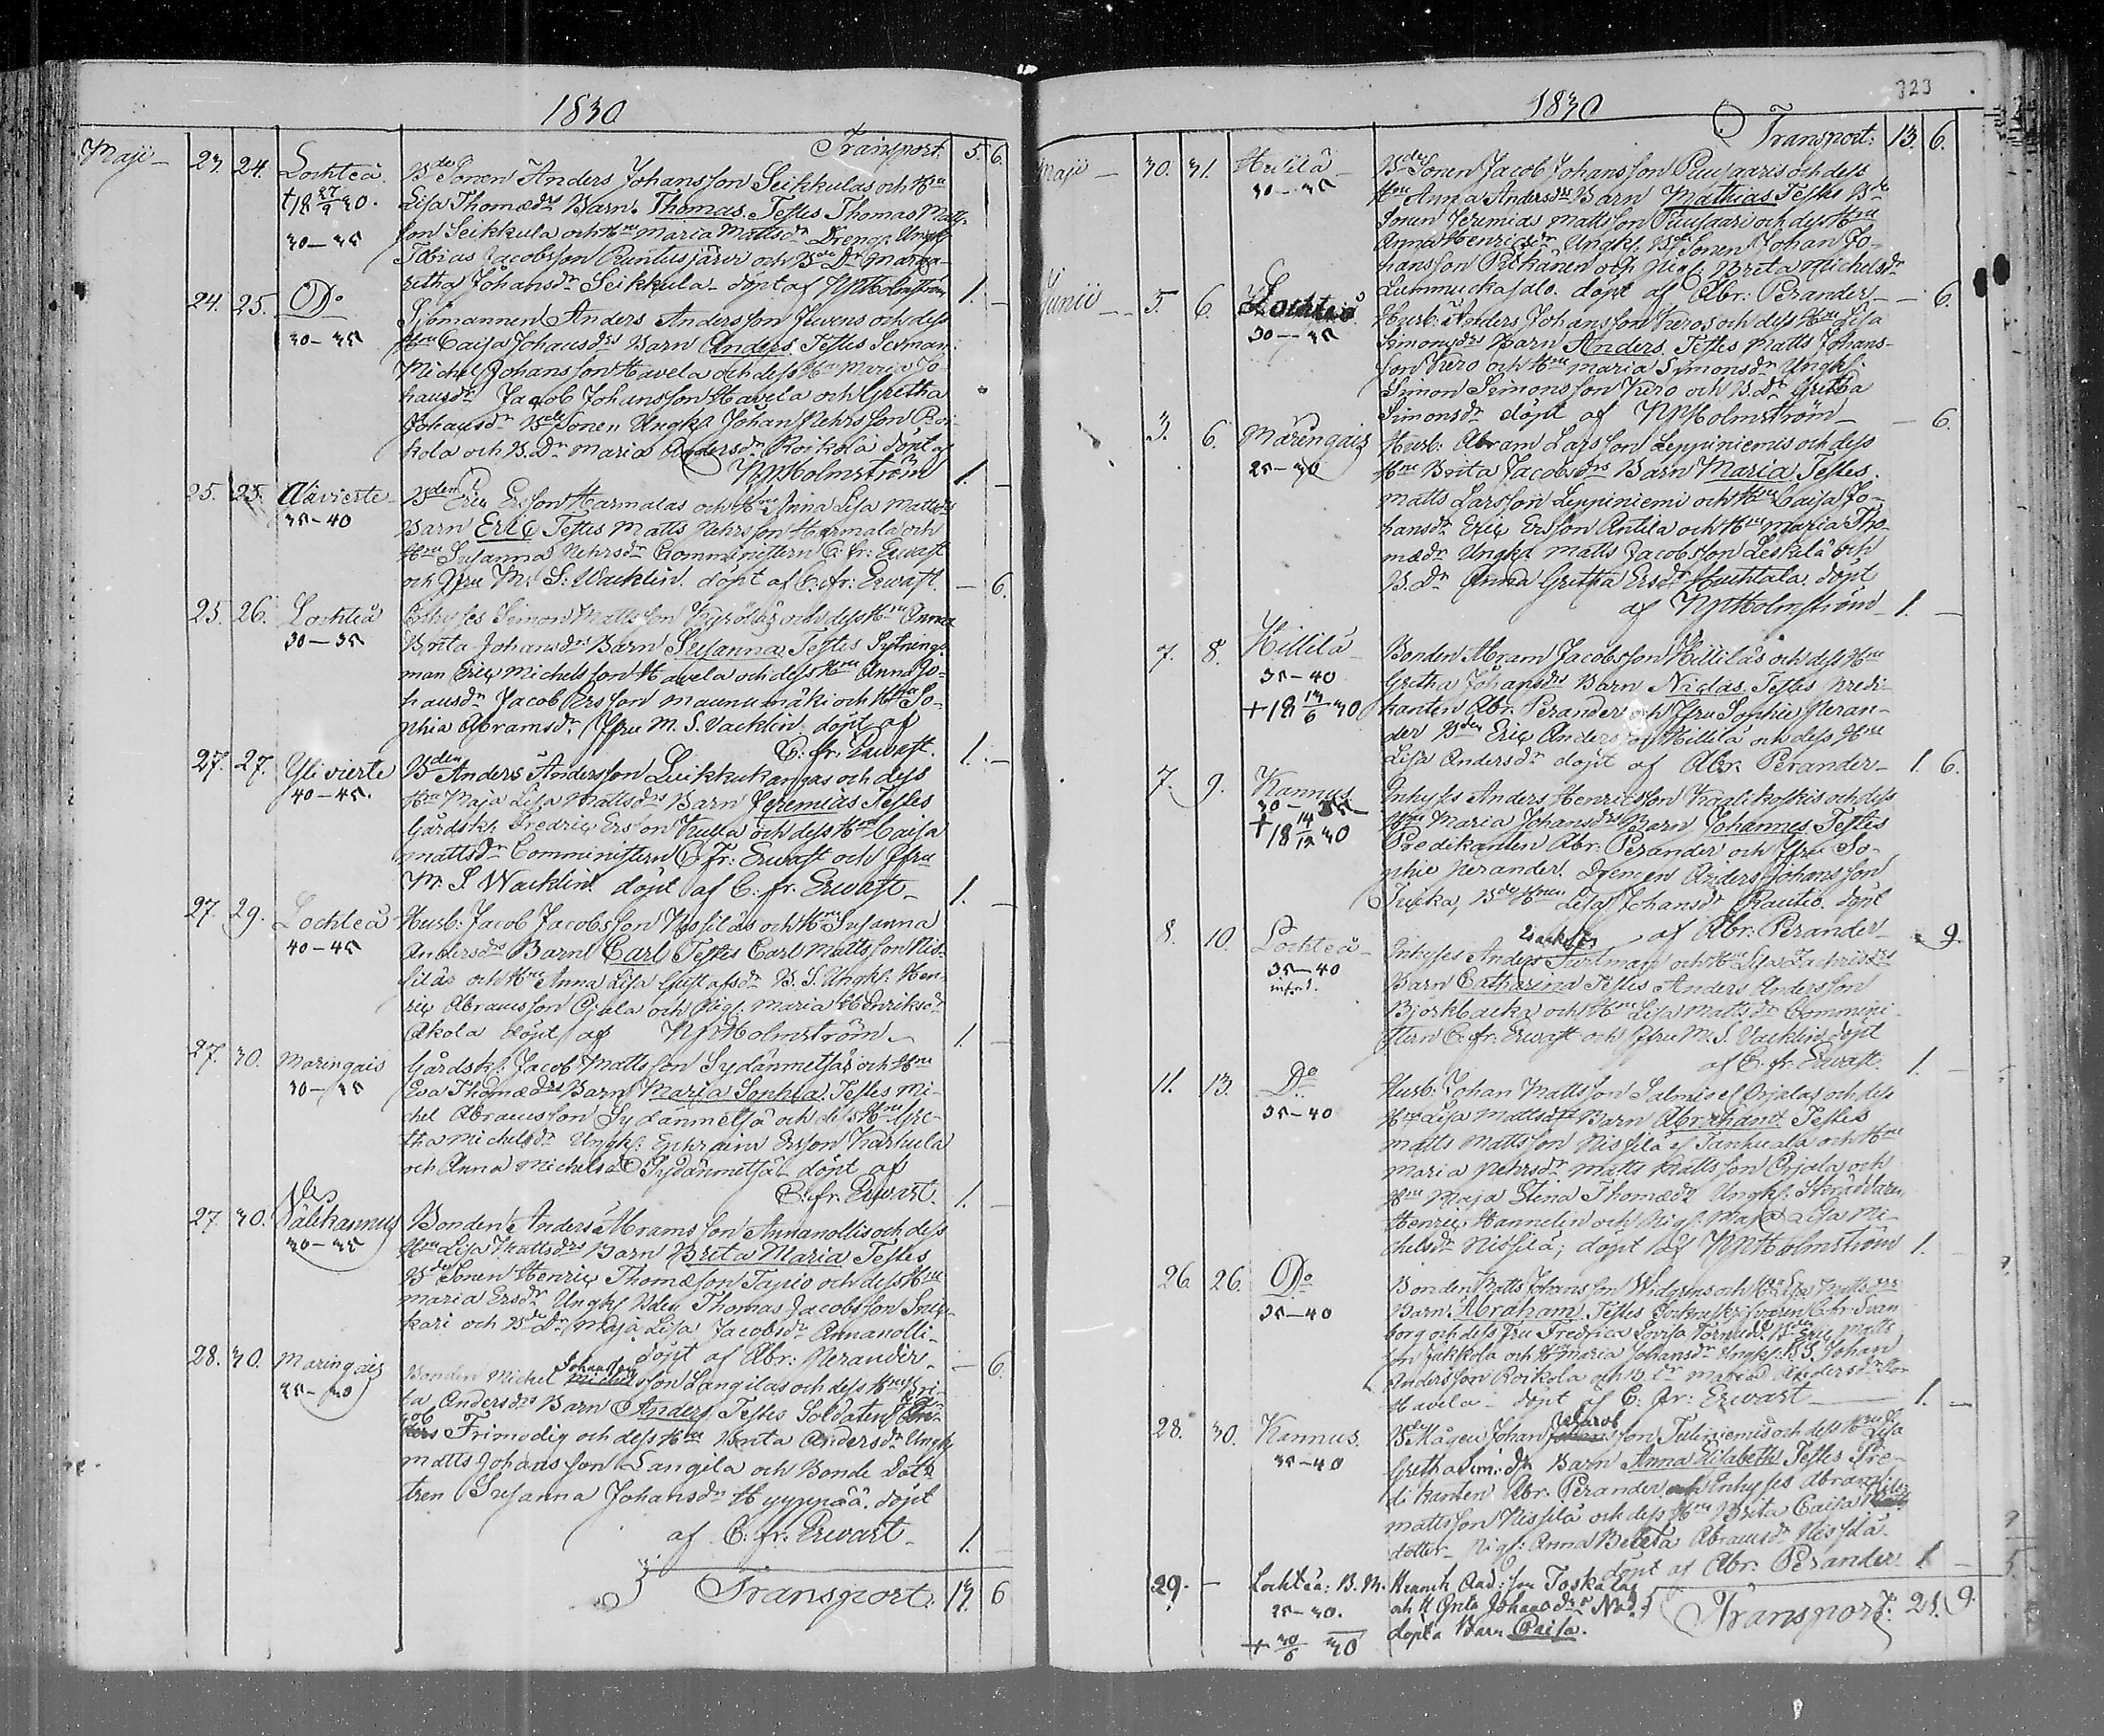 1830
Transport. 5. 6.
Maji 23. 24. Lochteå. Bde Sonen Anders Johansson Seikkulas och Hru
†18 27/7 30. Lisa Thomædrs Barn. Thomas. Testes Thomas Matts
30–35 son Seikkula och Hru Maria Mattsdr Dreng. Ungk.
Tobias Jacobsson Runtujärvi och Bde Dr Marga-
retha Johansdr Seikkula döpt af NPHolmström 1. –
24. 25. Do Sjömannen Anders Andersson Juvens och dess
30–35 Hru Caisa Johansdrs Barn Anders. Testes Sexman
Michel Johansson Havela och dess Hru Maria Jo-
hansdr Jacob Johansson Havela och Gretha
Johansdr Bde Sonen Ungk. Johan Pehrsson Roi-
kola och B. Dr Maria Andersdr Roikola döpt af
NPHolmström 1. –
25. 25. Alavierte Bden Eric Ersson Harmalas och Hru Anna Lisa Mattsdrs
35–40 Barn Eric Testes Matts Pehrsson Harmala och
Hru Susanna Pehrsdr Comministern C. fr: Ervast
och Jfru M. S: Wacklin. döpt af C. fr: Ervast. – 6.
25. 26. Lochteå Inhyses Simon Mattsson Kyröläs och dess Hru Anna
30–35 Brita Johansdrs Barn Susanna Testes Sytnings
man Eric Michelsson Havela och dess Hru Anna Jo-
hansdr Jacob Ersson Maunumäki och Hru So-
phia Abramsdr. Jfru M. S. Vacklin. döpt af
C. fr. Ervast. 1. –
27. 27. Ylivierte Bden Anders Andersson Luikkukangas och dess
40–45. Hru Maja Lisa Mattsdrs Barn Jeremias Testes
Gårdsk. Fredric Ersson Kulla och dess Hru Caisa
Mattsdr Comministern C. Fr: Ervast och Jfru
M. S Wacklin. döpt af C: fr. Ervast. 1. –
27. 29. Lochteå Husb: Jacob Jacobsson Nissiläs och Hru Susanna
40–45 Andersdrs Barn Carl Testes Carl Mattsson Nis-
siläs och Hru Anna Lisa Gustafsdr B. S. Ungk. Hen-
ric Abramsson Ojala och Pig. Maria Henriksdr
Akola döpt af NPHolmström. 1. –
27. 30. Maringais Gårdsk: Jacob Mattsson Sydänmetsäs och Hru
30–35 Eva Thomædrs Barn Maria Sophia. Testes Mi-
chel Abramsson Sydänmetsä och dess Hru Gre-
tha Michelsdr Ungk: Ephraim Ersson Karhula
och Anna Michelsdr Sydänmetsä döpt af
C. fr. Ervast. 1. –
27. 30. Välikannus Bonden Anders Abramsson Annanollis och dess
30–35 Hru Lisa Mattsdrs Barn Brita Maria Testes
Bde Sonen Henric Thomæson Tapio och dess Hru
Maria Ersdr Ungk Bden Thomas Jacobsson
kari och Bde Dr Maja Lisa Jacobsdr Annanolli
döpt af Abr: Perander. – 6.
28. 30. Maringais Bonden Michel Johansson Langilas och dess Hru Bri-
25–30 ta Andersdrs Barn Anders Testes Soldaten
Frimodig och dess Hru Brita Andersdr Ungk
Matts Johansson Langila och Bonde Dot-
tren Susanna Johansdr Hyyppää. döpt
af C. fr. Ervast. 1. –
Transport. 13. 6
1830
323
Transport: 13. 6.
Maji 30. 31. Hillilä Bde Sonen Jacob Johansson Puusaaris och dess
30–35 Hru Anna Andersdrs Barn Mathias Testes Bde
Sonen Jeremias Mattsson Puusaari och dess Hru
Anna Henricsdr Ungk. Bde Sonen Johan Jo-
hansson Pitkänen och Pig. Brita Michelsdr
Lummuckasalo. döpt af Abr: Perander – 6.
Junii 5. 6. Lochteå Husb: Anders Johansson Keros och dess Hru Lisa
30–35 Simonsdrs Barn Anders Testes Matts Johans-
son Kero och Hru Maria Simonsdr Ungk.
Simon Simonsson Kero och B. Dr Gretha
Simonsdr döpt af NPHolmström – 6.
3. 6. Maringais Husb: Abram Larsson Leppiniemis och dess
25–30 Hru Brita Jacobsdrs Barn Maria Testes.
Matts Larsson Leppiniemi och Hru Caisa Jo-
hansdr Eric Ersson Antila och Hru Maria Tho-
mædr Ungk. Matts Jacobsson Leskelä och
B. Dr Anna Gretha Ersdr Huchtala, döpt
af NPHolmström 1. –
7. 8. Hillilä Bonden Abram Jacobsson Hilliläs och dess Hru
35–40 Gretha Johansdrs Barn Niclas. Testes Predi-
+18 13/6 30 kanten Abr. Perander och Jfru Sophie Peran-
der Bden Eric Andersson Hillilä och dess Hru
Lisa Andersdr döpt af Abr. Perander 1. 6.
7. 9. Kannus Inhyses Anders Henricsson och dess
30–35 Hru Maria Johansdrs Barn Johannes Testes
+18 14/12 30 Predikanten Abr: Perander och Jfru So-
phie Perander. Drengen Anders Johansson
Bde Hru Lisa Johansdr Rautio. döpt
af Abr. Perander – 9
8. 10. Lochteå Inhyses Anders och Hru Lisa Zachrisdrs
35–40 Barn Catharina Testes Anders Andersson
Björkbacka och Hru Lisa Mattsdr Commini-
stern C. fr. Ervast och Jfru M. S. Vacklin döpt
af C. fr. Ervast. 1. –
11. 13. Do Husb: Johan Mattsson Salmio el Orjalas och dess
35–40 Hru Lisa Mattsdrs Barn Abraham Testes
Matts Mattsson Nissilä el Tanhuala och Hru
Maria Pehrsdr Matts Mattsson Orjala och
Hru Maja Stina Thomædr Ungk. Skräddaren
Henric Hannelin och Pig. Maja Lisa Mi-
chelsdr Nissilä; döpt af NPHolmström 1. –
26. 26. Do Bonden Matts Johansson Widgrens och Hru Lisa Mattsdrs
35–40 Barn: Abraham. Testes Chr. Svan
borg och dess Fru Fredrica Lovisa Törnudd, Bden Eric Matts
son Jakkola och Hru Maria Johansdr Ungk. B. S. Johan
Andersson Roikola och B. dr Maria Andersdr
Havela döpt af C. fr: Ervast 1. –
28. 30. Kannus. Bde Mågen Johan Jacobsson Juliniemis och dess Hru Lisa
35–40 Gretha Sim: Dr Barn Anna Elisabeth Testes Pre-
dikanten Abr. Perander Inhyses Abram
Mattsson Nissilä och dess Hru Brita Caisa Nils
dotter Pig: Anna Beata Abramsdr Nissilä
döpt af Abr: Perander 1 –
29. – Lochteå: B. M. Henrich And:son Toskalas
25–30. och H Greta Johansdrs Nöd-
+ 30/6 30 döpta Barn Caisa.
Transport. 21. 9.